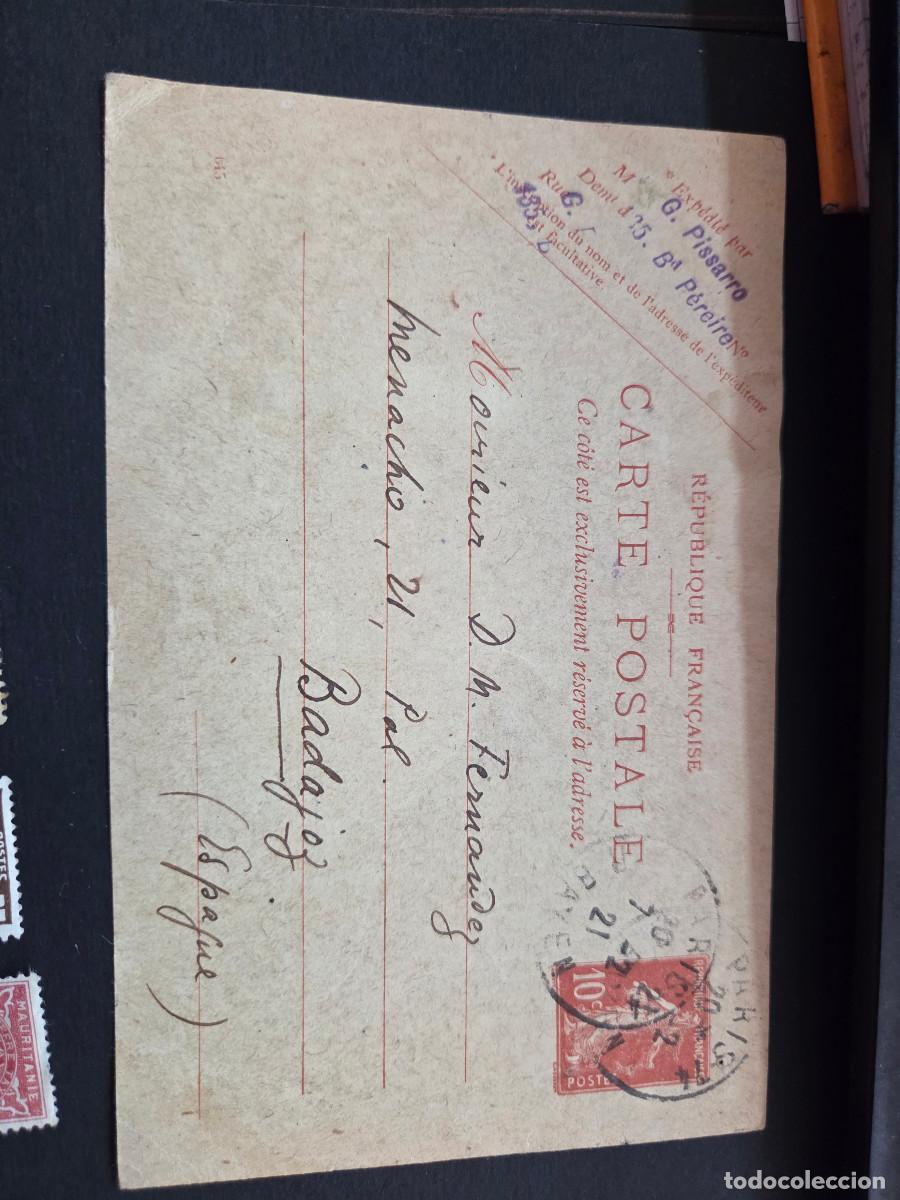 RÉPUBLIQUE FRANÇAISE
CARTE POSTALE
Ce côté est exclusivement réservé à l'adresse.
Expédié par
M G. Pissarro
Demt à 135. Bd Péreire
Rue No
L'inscription du nom et de l'adresse de l'expéditeur
est facultative.
G.
135, B
Monsieur D. M. Fernandez
Menacho, 21, Pal.
Badajoz
(Espagne)
645
10c
POSTES
PARIS
MAURITANIE
POSTES
todocoleccion